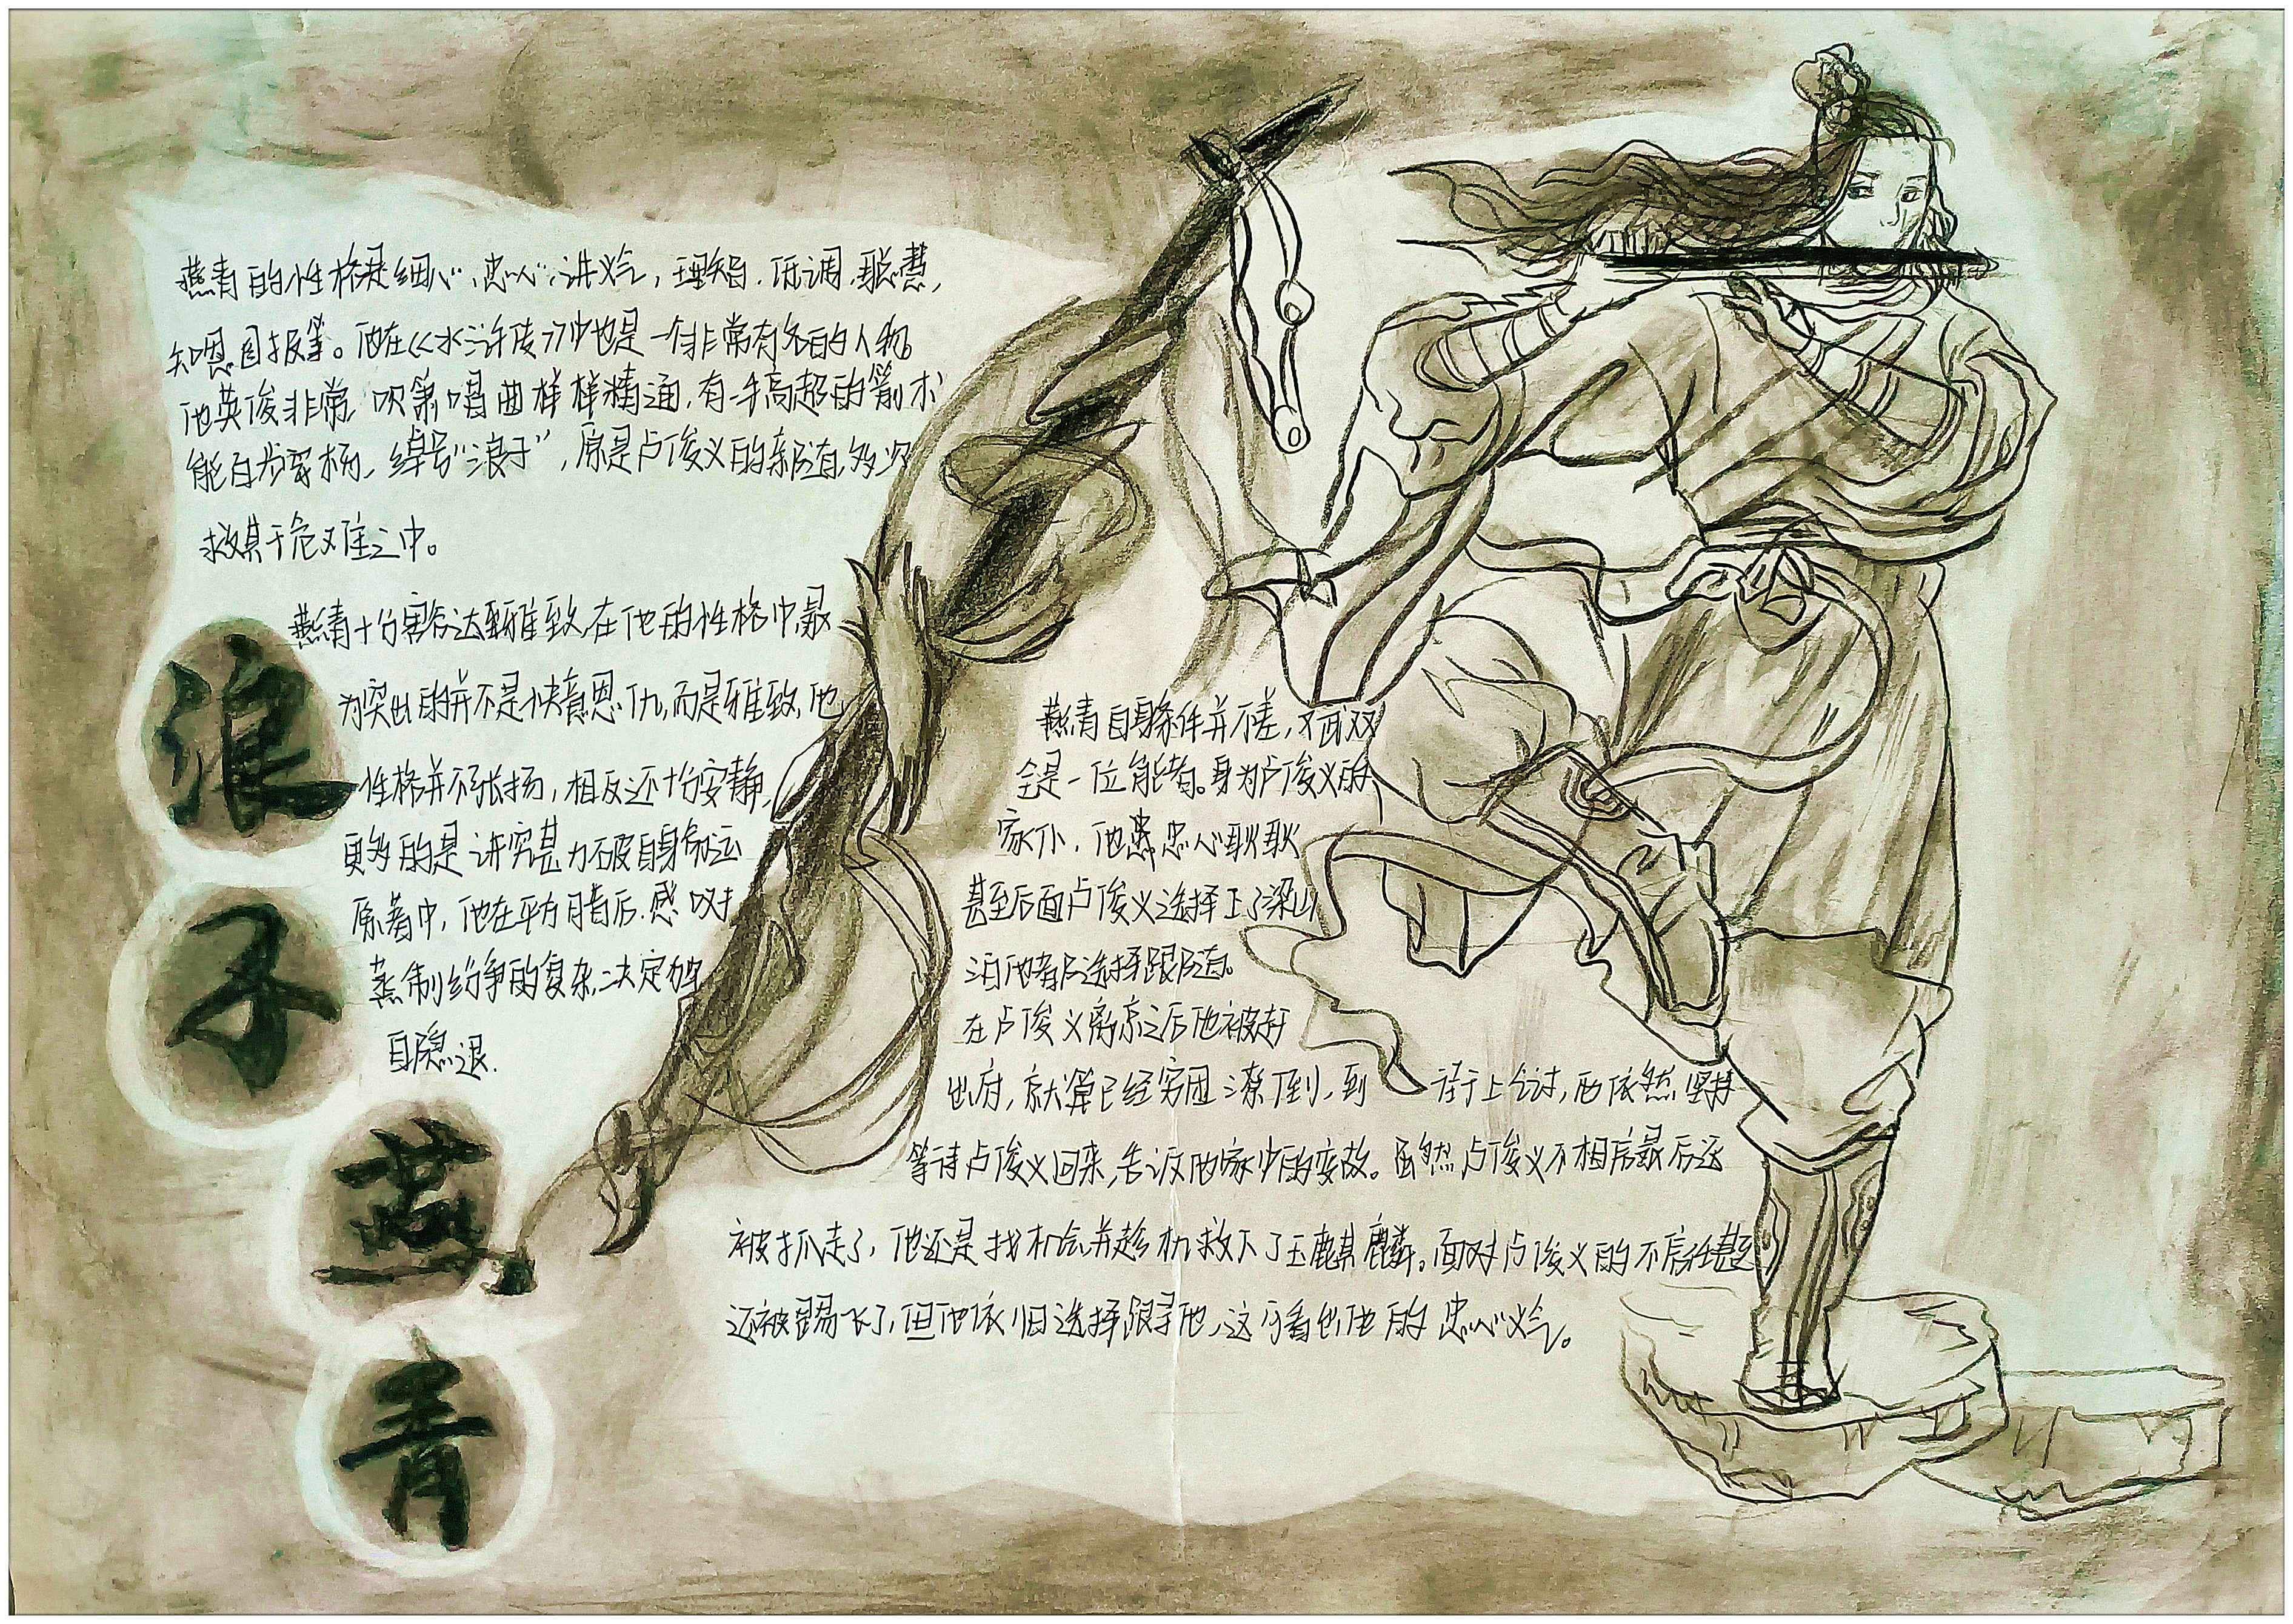 燕青的性格是细心、忠心、讲义气，理智、低调、聪慧，
知恩图报等。他在《水浒传》中也是一个非常有名的人物
他英俊非常，吹箫唱曲样样精通，有一手高超的箭术
能百步穿杨，绰号“浪子”，原是卢俊义的亲随，多次
救其于危难之中。
燕青十分豁达雅致，在他的性格中，最
为突出的并不是快意恩仇，而是雅致，他
性格并不张扬，相反还十分安静，
更多的是讲究
原著中，他在平方腊后，感叹于
纷争的复杂，决定独
自隐退.
浪
子
燕
青
燕青自身条件并不差，文武双
全是一位能者。身为卢俊义的
家仆，他忠心耿耿
甚至后面卢俊义选择上了梁山
泊他都选择跟随。
在卢俊义离京之后他被赶
出府，就算已经穷困潦倒，到
街上乞讨，他依然坚持
等待卢俊义回来，告诉他家中的变故。虽然卢俊义不相信最后还
被抓走了，他还是找机会并趁机救下了玉麒麟。面对卢俊义的不信任甚至
还被踢飞了，但他依旧选择跟寻他，这可看出他的忠心义气。